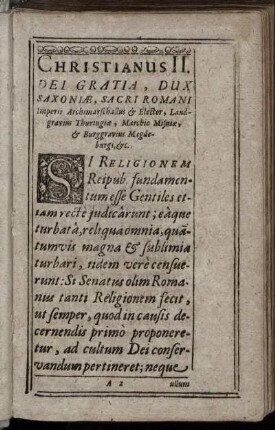 CHRISTIANUS II.
DEI GRATIA, DUX
SAXONIÆ, SACRI ROMANI
Imperii Archimarschallus & Elector, Land-
gravius Thuringiæ, Marchio Misniæ,
& Burggravius Magde-
burgi, &c.
SI RELIGIONEM
Reipub. fundamen-
tum esse Gentiles et-
iam rectè judicârunt; eâque
turbatâ, reliqua omnia, quã-
tumvis magna & sublimia
turbari, iidem verè censue-
runt: Si Senatus olim Roma-
nus tanti Religionem fecit,
ut semper, quod in causis de-
cernendis primò propone re-
tur, ad cultum Dei conser-
vandum pertineret; neque
A 2 ullum